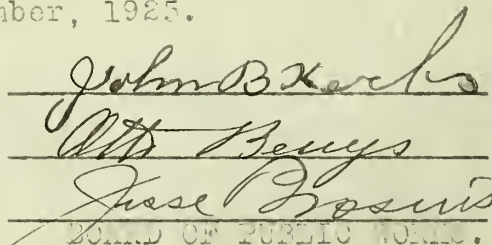 mber, 1925.
John B Kerbs
Otto Benys
Jesse
BOARD OF PUBLIC WORKS.